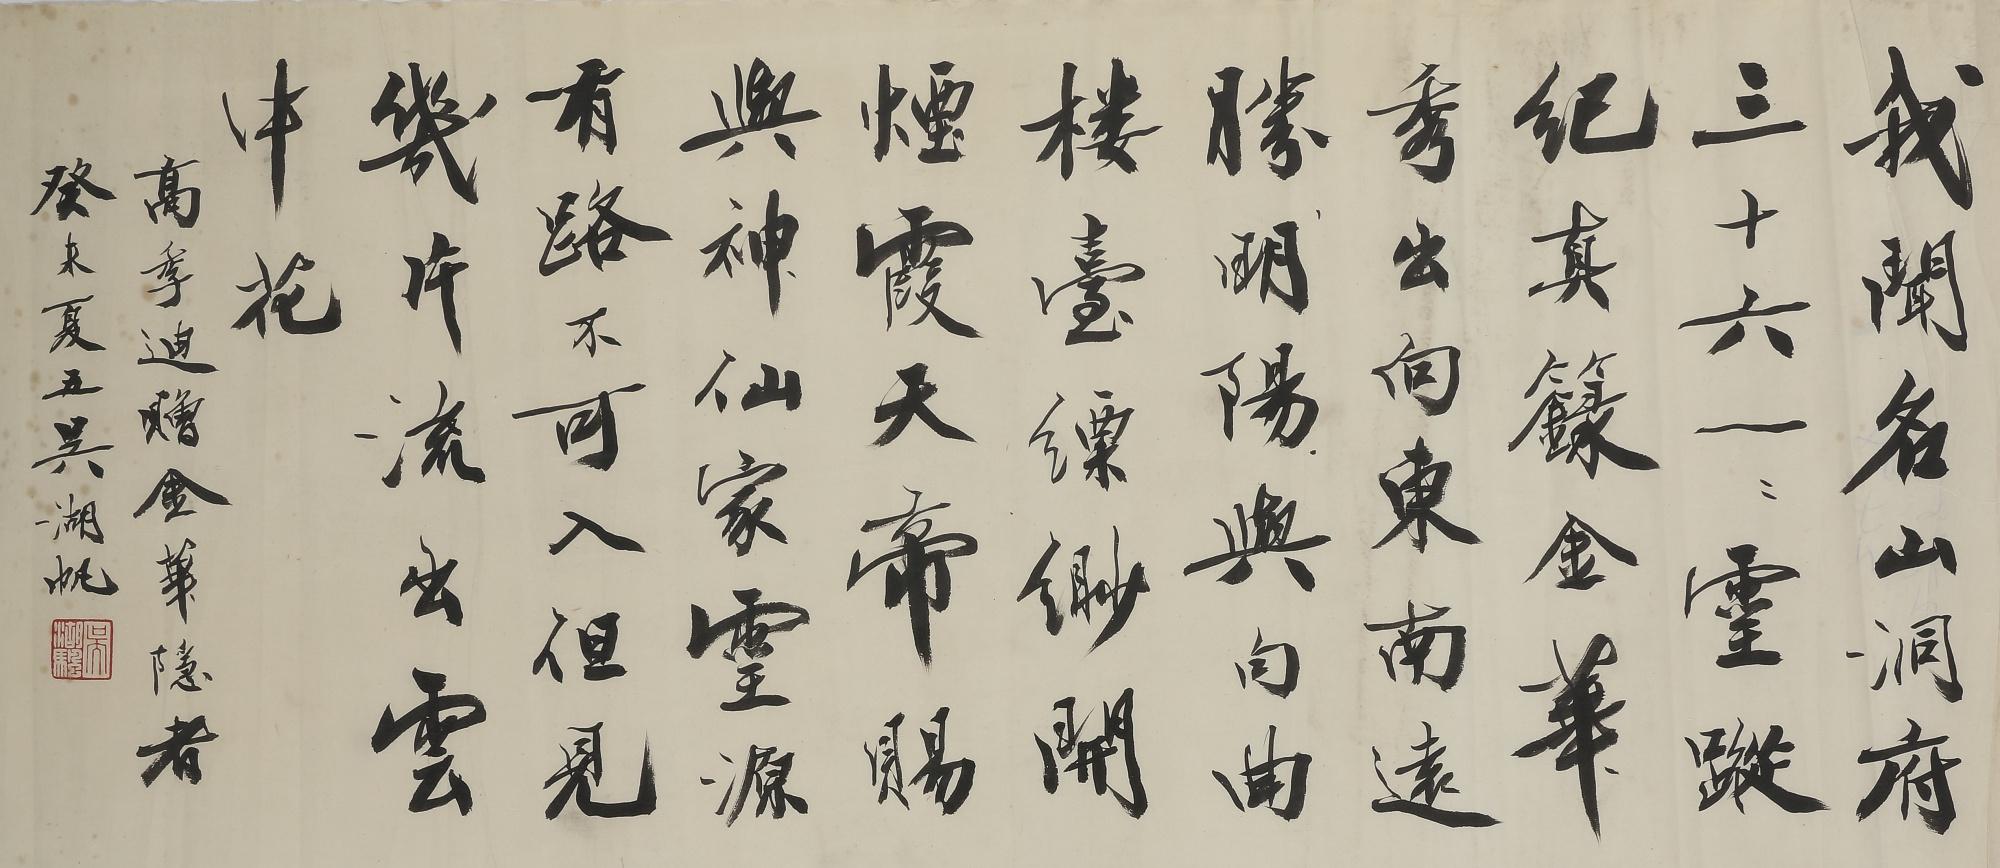 我聞名山洞府
三十六一ミ靈蹤
紀真籙金華
秀出向東南遠
勝朙陽與句曲
楼臺縹緲開
煙霞天帝賜
與神仙家靈源
有路不可入但見
幾片流出雲
中花
高季迪贈金華隱者
癸未夏五吴湖帆